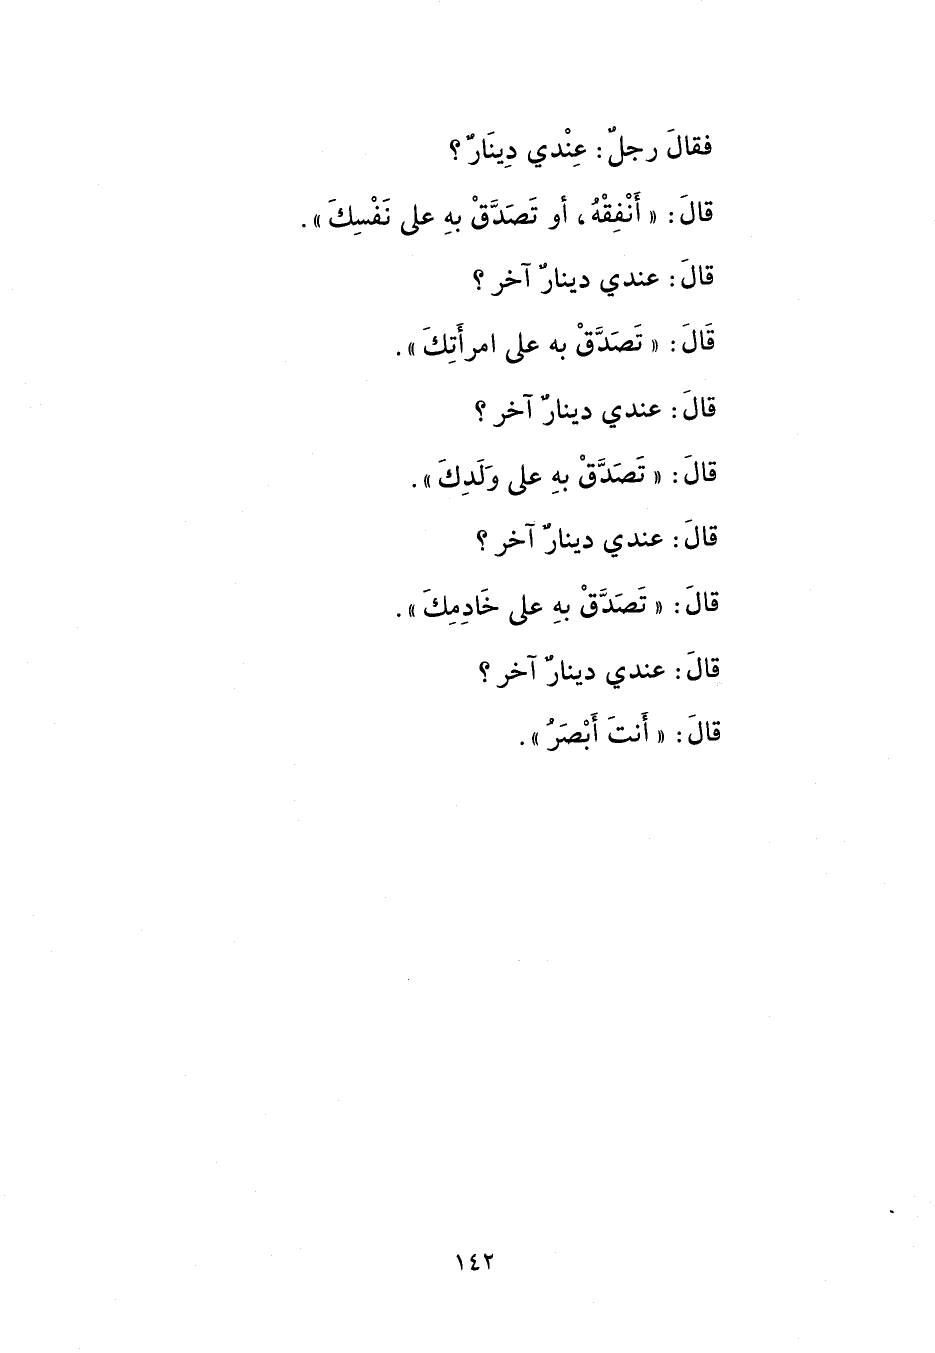 فقالَ رجلٌ : عِنْدي دِينَارٌ ؟
قالَ : « أَنْفِقْهُ ، أو تَصَدَّقْ بهِ على نَفْسِكَ » .
قالَ : عندي دينارٌ آخر ؟
قَالَ : « تَصَدَّقْ به على امرأَتِكَ » .
قالَ : عندي دينارٌ آخر ؟
قالَ : « تَصَدَّقْ بهِ على وَلَدِكَ » .
قالَ : عندي دينارٌ آخر ؟
قالَ : « تَصَدَّقْ بهِ على خَادِمِكَ » .
قالَ : عندي دينارٌ آخر ؟
قالَ : « أَنتَ أَبْصَرُ » .
١٤٢